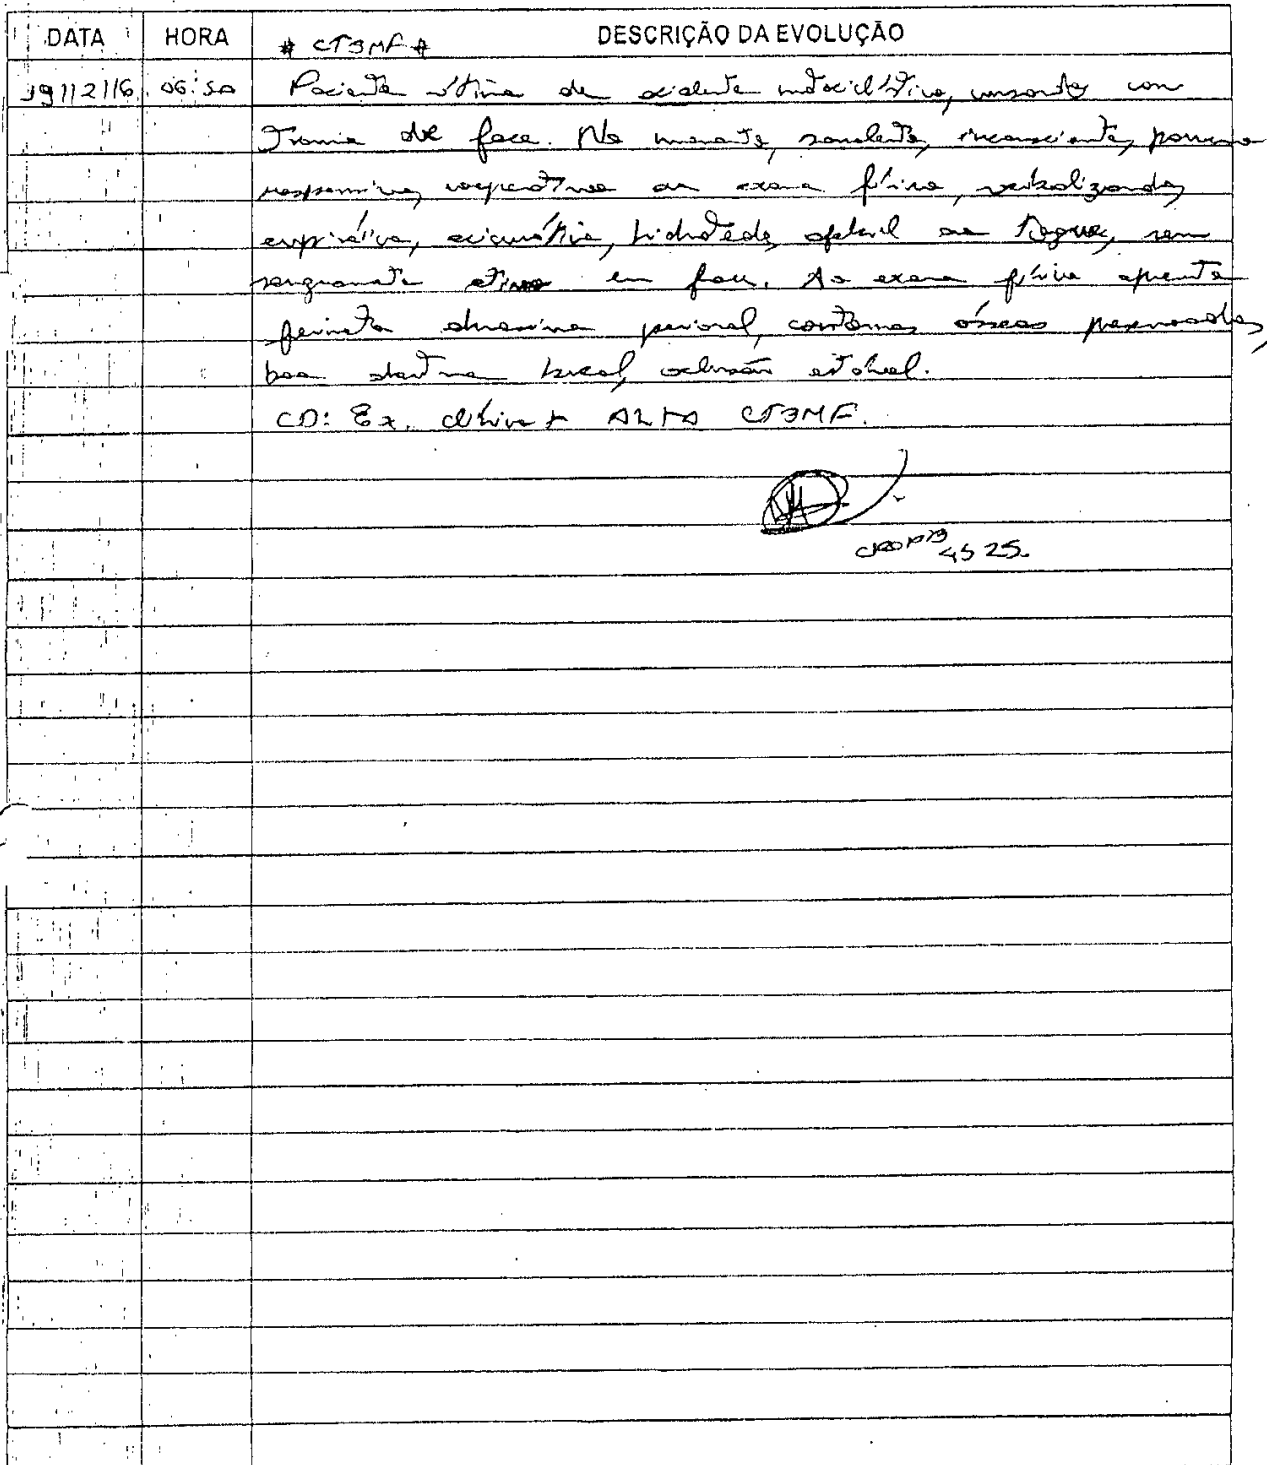 DATA HORA DESCRIÇÃO DA EVOLUÇÃO
# CTBMF #
19/12/16 06:50 Paciente vítima de acidente motociclístico, cursando com
Trauma de face. No momento, sonolento, inconsciente, pouco
responsivo, cooperativo ao exame físico, verbalizando,
eupnéico, acianótico, hidratado, afebril ao toque, sem
sangramento ativo em face. Ao exame físico apresenta
ferimento abrasivo perioral, contornos ósseos preservados,
boa abertura bucal, oclusão estável.
CD: Ex. clínico + ALTA CTBMF.
CRO PB
4525.